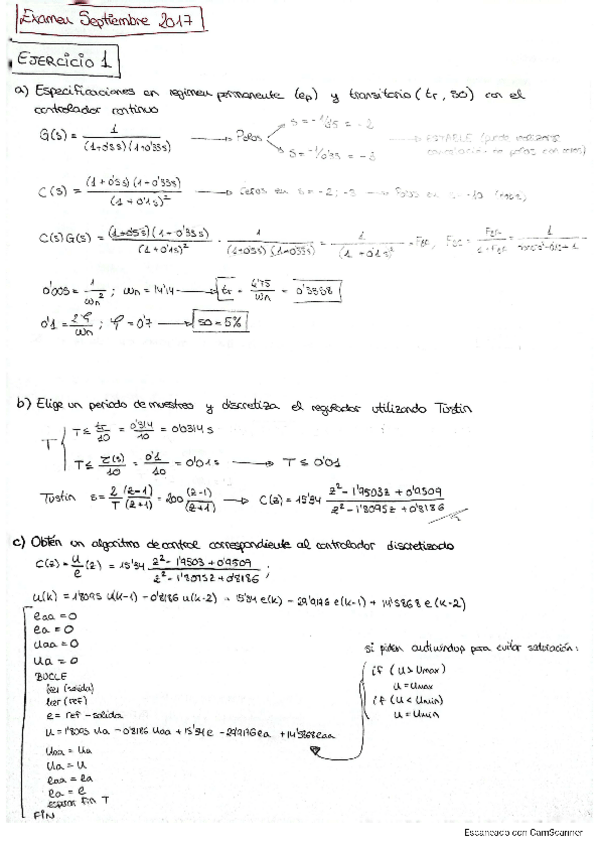 Examen Septiembre 2017
EJERCICIO 1
a) Especificaciones en regimen permanente (ep) y transitorio (tr, SO) con el
controlador continuo
G(s) = 1 / (1+0'5s)(1+0'33s) → Polos
s = -1/0'5 = -2
s = -1/0'33 = -3
→ ESTABLE
C(s) = (1+0'5s)(1+0'33s) / (1+0'1s)² → Ceros en s = -2; -3 → Polos en s = -10
C(s)G(s) = (1+0'5s)(1+0'33s) / (1+0'1s)² · 1 / (1+0'5s)(1+0'33s) = 1 / (1+0'1s)²
0'005 = 1/ωn² ; ωn = 14'14 → tr = 4'75/ωn = 0'3358
0'1 = 2ζ/ωn ; ζ = 0'7 → SO = 5%
b) Elige un periodo de muestreo y discretiza el regulador utilizando Tustin
T
T ≤ tr/10 = 0'314/10 = 0'0314 s
T ≤ τ(s)/10 = 0'1/10 = 0'01 s → T ≤ 0'01
Tustin s = 2/T (z-1)/(z+1) = 200 (z-1)/(z+1) → C(z) = 15'34 z² - 1'9503z + 0'9509 / z² - 1'8095z + 0'8186
c) Obtén un algoritmo de control correspondiente al controlador discretizado
C(z) = u/e (z) = 15'34 z² - 1'9503 + 0'9509 / z² - 1'8095z + 0'8186 ;
u(k) = 1'8095 u(k-1) - 0'8186 u(k-2) + 15'34 e(k) - 29'9176 e(k-1) + 14'5868 e(k-2)
eaa = 0
ea = 0
uaa = 0
ua = 0
BUCLE
leer (salida)
leer (ref)
e = ref - salida
u = 1'8095 ua - 0'8186 uaa + 15'34 e - 29'9176 ea + 14'5868 eaa
uaa = ua
ua = u
eaa = ea
ea = e
esperar fin T
FIN
si piden antiwindup para evitar saturación:
if (u > umax)
u = umax
if (u < umin)
u = umin
Escaneado con CamScanner